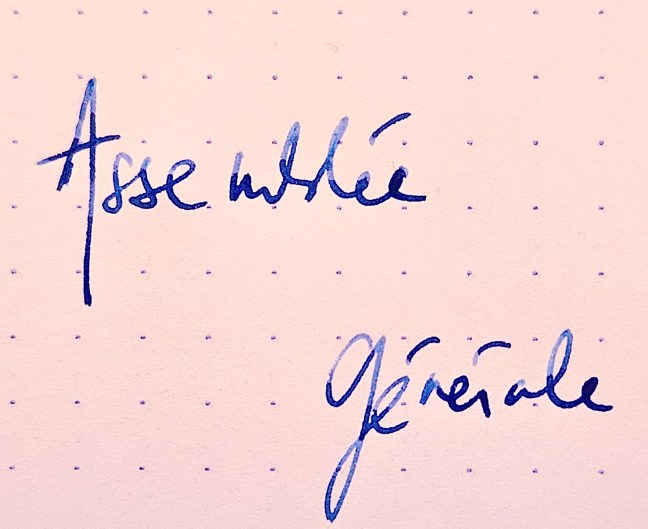 Assemblée
Générale